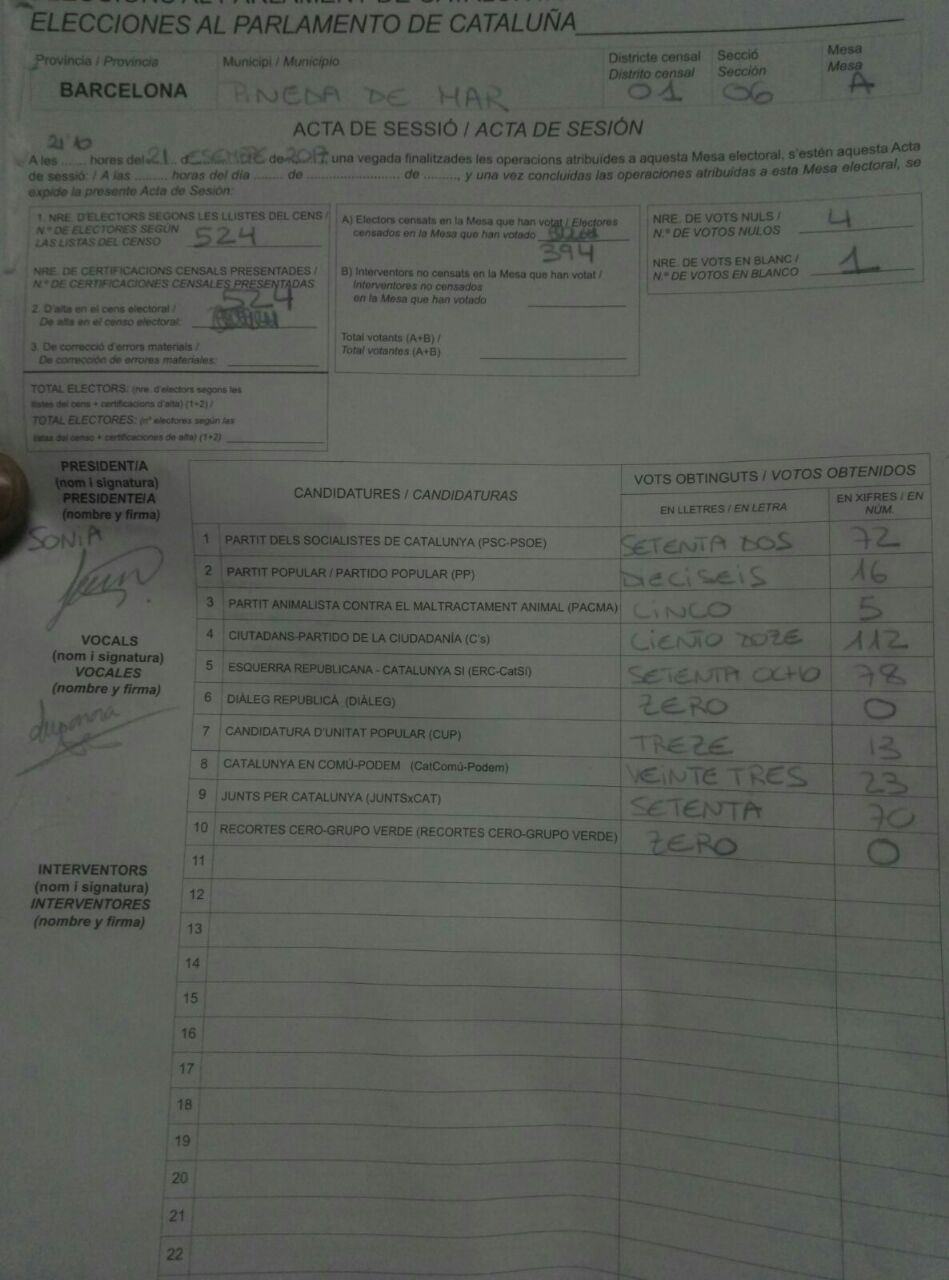 ELECCIONS AL PARLAMENT DE CATALUNYA
ELECCIONES AL PARLAMENTO DE CATALUÑA
Provincia / Provincia
BARCELONA
Municipi / Municipio
PINEDA DE MAR
Districte censal
Distrito censal
01
Secció
Sección
06
Mesa
Mesa
A
ACTA DE SESSIÓ / ACTA DE SESIÓN
21'10
A les ....... hores del 21.. dESEMBRE de 2017, una vegada finalitzades les operacions atribuïdes a aquesta Mesa electoral, s'estén aquesta Acta
de sessió: / A las ........ horas del día ........ de ........................ de ........, y una vez concluidas las operaciones atribuidas a esta Mesa electoral, se
expide la presente Acta de Sesión:
1. NRE. D'ELECTORS SEGONS LES LLISTES DEL CENS /
N.º DE ELECTORES SEGÚN
LAS LISTAS DEL CENSO
524
NRE. DE CERTIFICACIONS CENSALS PRESENTADES /
N.º DE CERTIFICACIONES CENSALES PRESENTADAS
524
2. D'alta en el cens electoral /
De alta en el censo electoral:
3. De correcció d'errors materials /
De corrección de errores materiales:
TOTAL ELECTORS: (nre. d'electors segons les
llistes del cens + certificacions d'alta) (1+2) /
TOTAL ELECTORES: (nº electores según las
listas del censo + certificaciones de alta) (1+2)
A) Electors censats en la Mesa que han votat / Electores
censados en la Mesa que han votado
394
B) Interventors no censats en la Mesa que han votat /
Interventores no censados
en la Mesa que han votado
Total votants (A+B) /
Total votantes (A+B)
NRE. DE VOTS NULS /
N.º DE VOTOS NULOS
4
NRE. DE VOTS EN BLANC /
N.º DE VOTOS EN BLANCO
1
PRESIDENT/A
(nom i signatura)
PRESIDENTE/A
(nombre y firma)
SONIA
VOCALS
(nom i signatura)
VOCALES
(nombre y firma)
INTERVENTORS
(nom i signatura)
INTERVENTORES
(nombre y firma)
CANDIDATURES / CANDIDATURAS
VOTS OBTINGUTS / VOTOS OBTENIDOS
EN LLETRES / EN LETRA
EN XIFRES / EN
NÚM.
1 PARTIT DELS SOCIALISTES DE CATALUNYA (PSC-PSOE) SETENTA DOS 72
2 PARTIT POPULAR / PARTIDO POPULAR (PP) DIECISEIS 16
3 PARTIT ANIMALISTA CONTRA EL MALTRACTAMENT ANIMAL (PACMA) CINCO 5
4 CIUTADANS-PARTIDO DE LA CIUDADANÍA (C's) CIENTO DOZE 112
5 ESQUERRA REPUBLICANA - CATALUNYA SI (ERC-CatSí) SETENTA OCHO 78
6 DIÀLEG REPUBLICÀ (DIÀLEG) ZERO 0
7 CANDIDATURA D'UNITAT POPULAR (CUP) TREZE 13
8 CATALUNYA EN COMÚ-PODEM (CatComú-Podem) VEINTE TRES 23
9 JUNTS PER CATALUNYA (JUNTSxCAT) SETENTA 70
10 RECORTES CERO-GRUPO VERDE (RECORTES CERO-GRUPO VERDE) ZERO 0
11
12
13
14
15
16
17
18
19
20
21
22